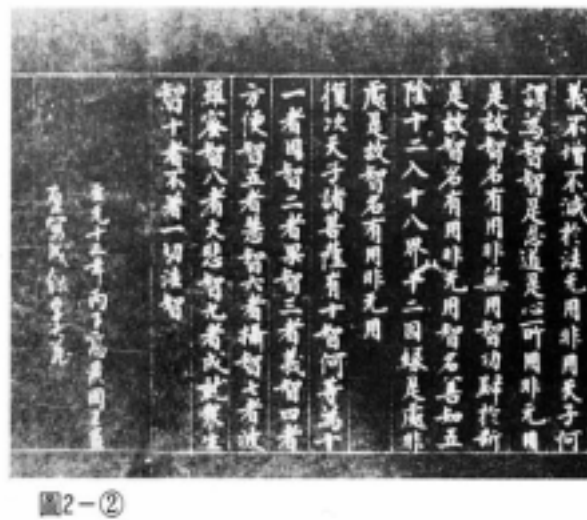 義不增不減於法无用非用天子何
謂為智智是意道是心所用非无用
是故智名有用非無用智功歸於斷
是故智名有用非无用智名善知五
陰十二入十八界十二因緣是處非
處是故智名有用非无用
復次天子諸菩薩有十智何等為十
一者因智二者果智三者義智四者
方便智五者慧智六者攝智七者波
羅蜜智八者大悲智九者成就衆生
智十者不著一切法智
至元十二年丙子高麗國王
寫成銀字大
圖2-②